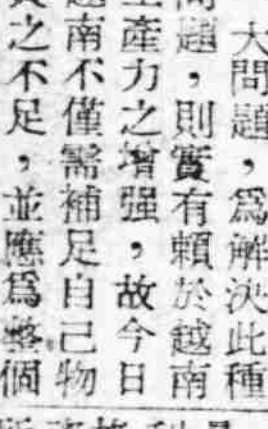 大問題，爲解決此種
題，則實有賴於越南
產力之增强，故今日
南不僅需補足自己物
之不足，並應爲整個